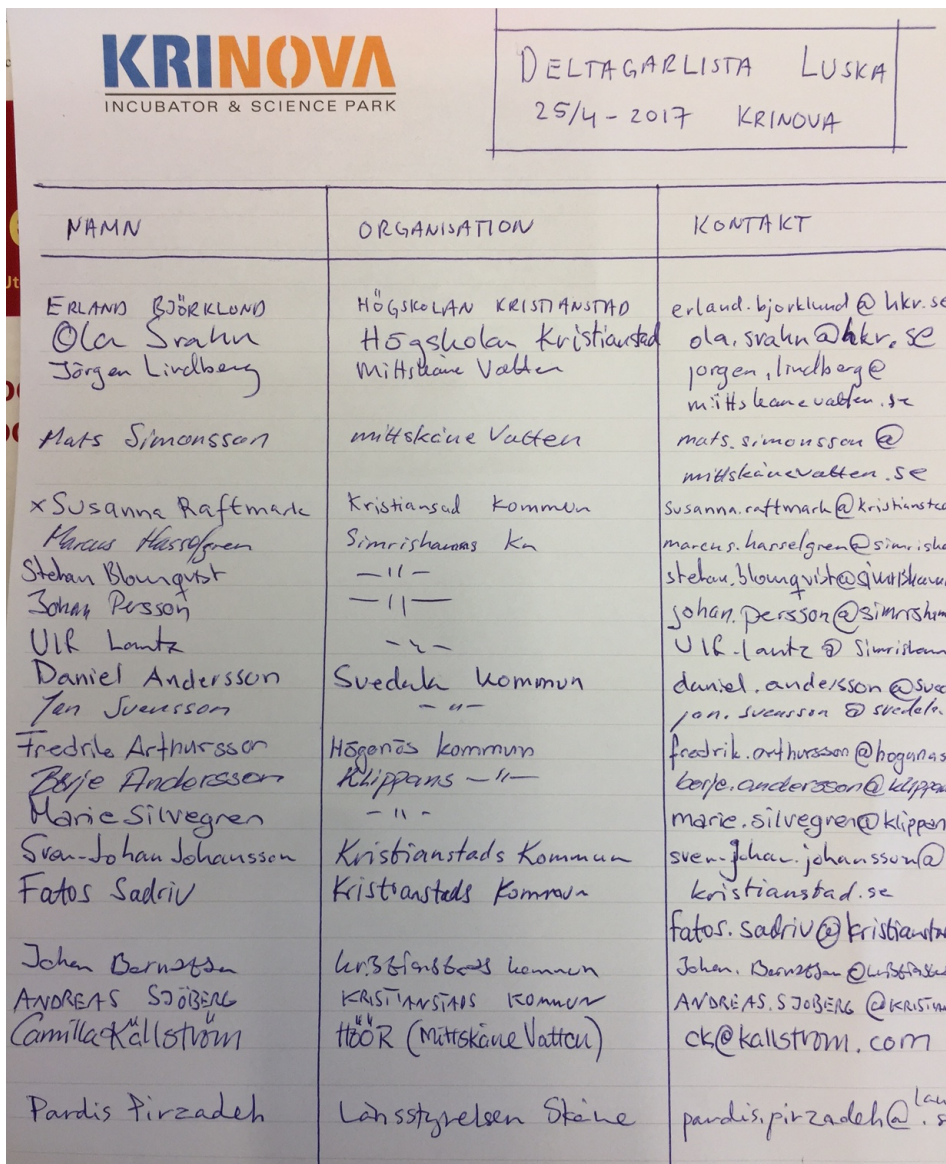 KRINOVA
INCUBATOR & SCIENCE PARK
DELTAGARLISTA LUSKA
25/4-2017 KRINOVA
NAMN ORGANISATION KONTAKT
ERLAND BJÖRKLUND HÖGSKOLAN KRISTIANSTAD erland.bjorklund@hkr.se
Ola Svahn Högskolan Kristianstad ola.svahn@hkr.se
Jörgen Lindberg Mittskåne Vatten jorgen.lindberg@
mittskanevatten.se
Mats Simonsson mittskåne Vatten mats.simonsson@
mittskånevatten.se
x Susanna Raftmark Kristiansad Kommun susanna.raftmark@kristianstad
Marcus Hasselgren Simrishamns kn marcus.hasselgren@simrisha
Stefan Blomqvist —"— stefan.blomqvist@simrisham
Johan Persson —"— johan.persson@simrisham
Ulf Lantz -"- Ulf-lantz@Simrisham
Daniel Andersson Svedala Kommun daniel.andersson@sve
Jan Svensson -"- jan.svensson@svedala.
Fredrik Arthursson Högenäs kommun fredrik.arthursson@hoganas
Börje Andersson Klippans —"— borje.andersson@klippa
Marie Silvegren -"- marie.silvegren@klippan
Sven-Johan Johansson Kristianstads Kommun sven-johan.johansson@
kristianstad.se
Fatos Sadriu Kristianstads Kommun
fatos.sadriu@kristiansta
Johan Berntsson kristianstads kommun Johan.Berntsson@kristianstad
ANDREAS SJÖBERG KRISTIANSTADS KOMMUN ANDREAS.SJOBERG@KRISTIAN
Camilla Källström HÖÖR (Mittskåne Vatten) ck@kallstrom.com
Pardis Pirzadeh Länsstyrelsen Skåne pardis.pirzadeh@